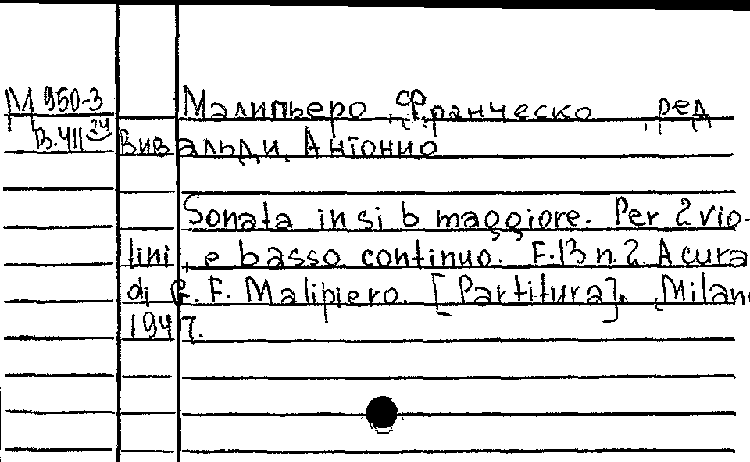 М 950-3
Малипьеро Франческо ред
В.411
Вивальди, Антонио
Sonata in si b maggiore. Per 2 vio-
lini e basso continuo. F.13 n.2. A cura
di G. F. Malipiero. [Partitura]. Milano
1947.